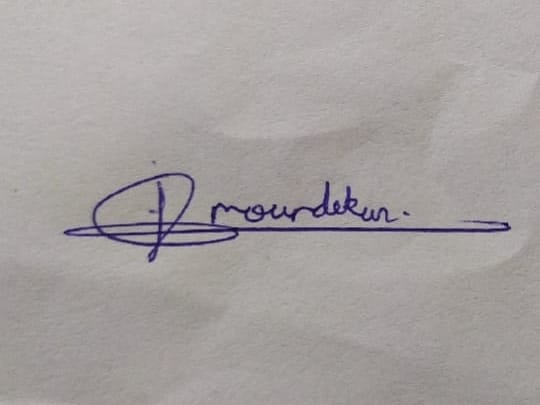 P moundekar.